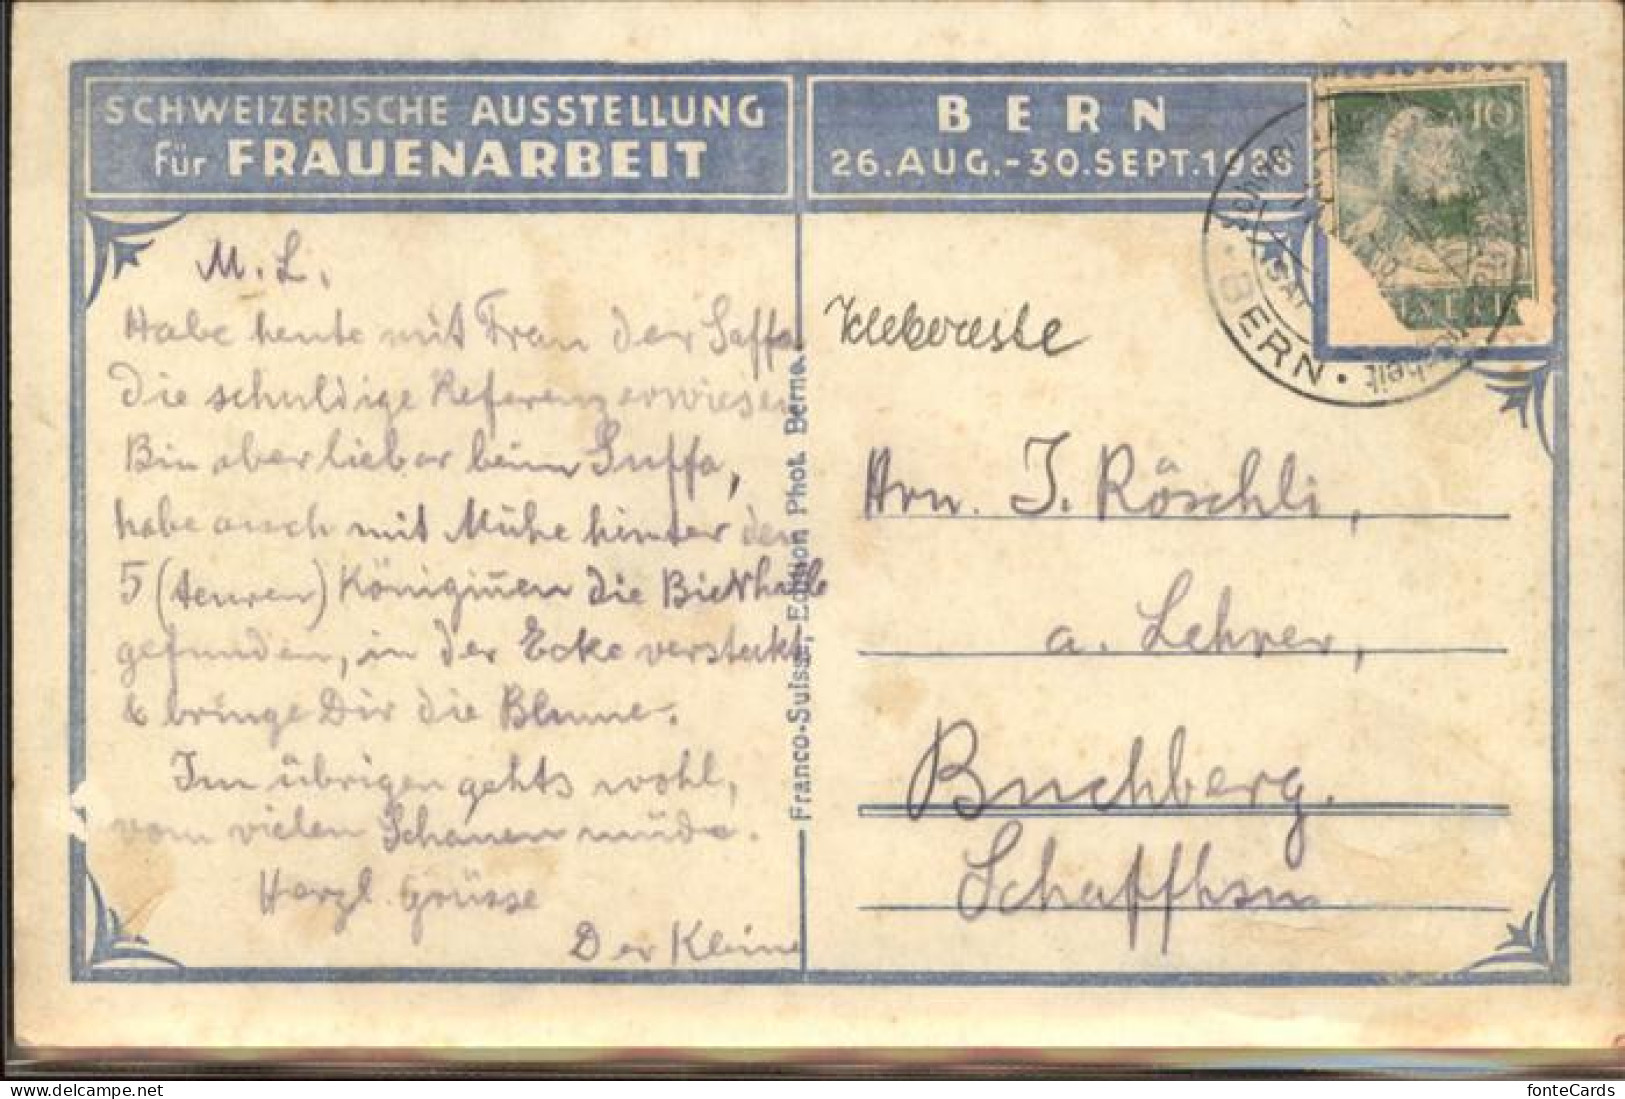 SCHWEIZERISCHE AUSSTELLUNG
für FRAUENARBEIT
BERN
26. AUG.-30. SEPT. 1928
M. L.
Habe heute mit Frau der Saffa
die schuldige Referenz erwiesen
Bin aber lieber beim Suffa,
habe auch mit Mühe hinter den
5 (teuren) Königinnen die Bierhalle
gefunden, in der Ecke versteckt
& bringe Dir die Blume.
Im übrigen gehts wohl,
vom vielen Schauen müde.
Herzl. Grüsse
Der Kleine
Franco-Suisse, Edition Phot. Berne.
Klebereste
10
HELVETIA
BERN
SAFFA
Hrn. J. Röschli,
a. Lehrer,
Buchberg.
Schaffhsn
www.delcampe.net
fonteCards